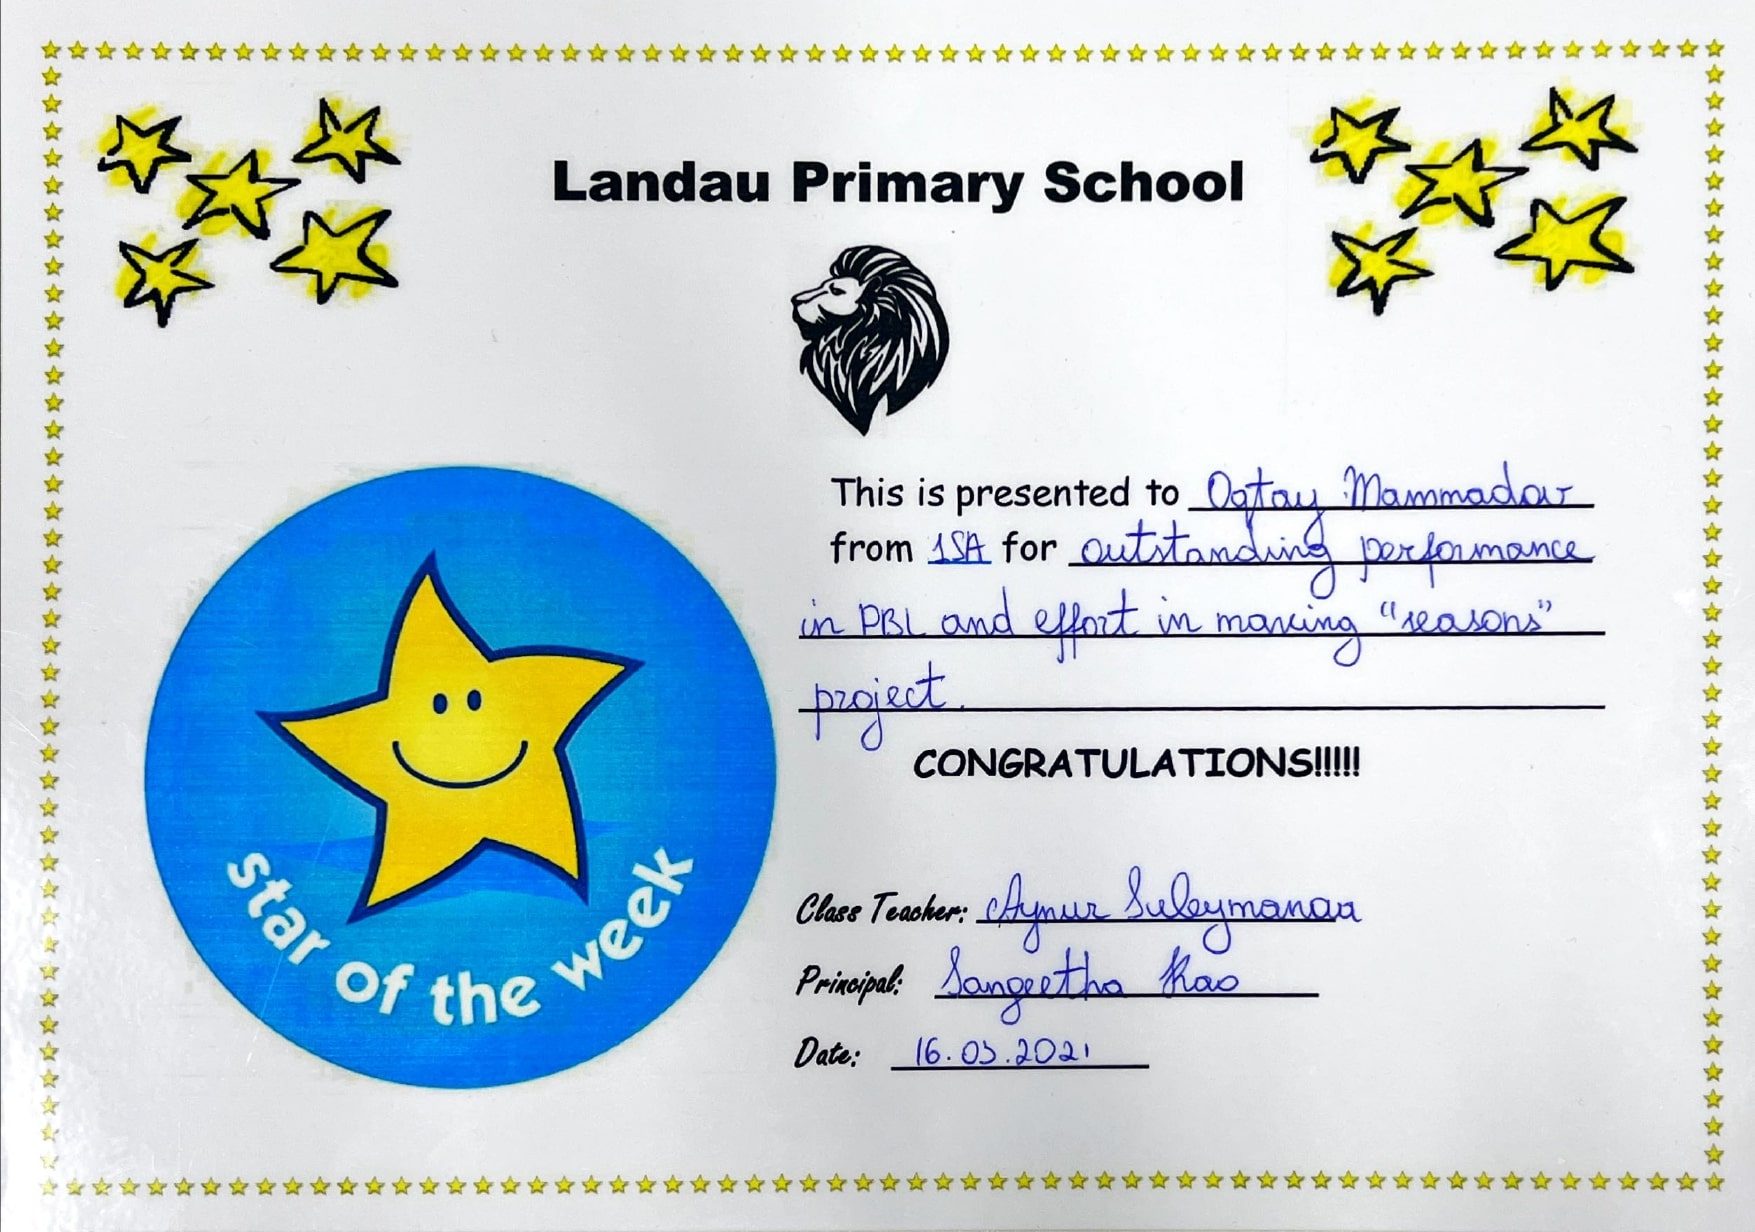 Landau Primary School
This is presented to Oqtay Mammadov
from 1SA for outstanding performance
in PBL and effort in making "seasons"
project.
CONGRATULATIONS!!!!!
star of the week
Class Teacher: Aynur Suleymanova
Principal: Sangeetha Rao
Date: 16.03.2021